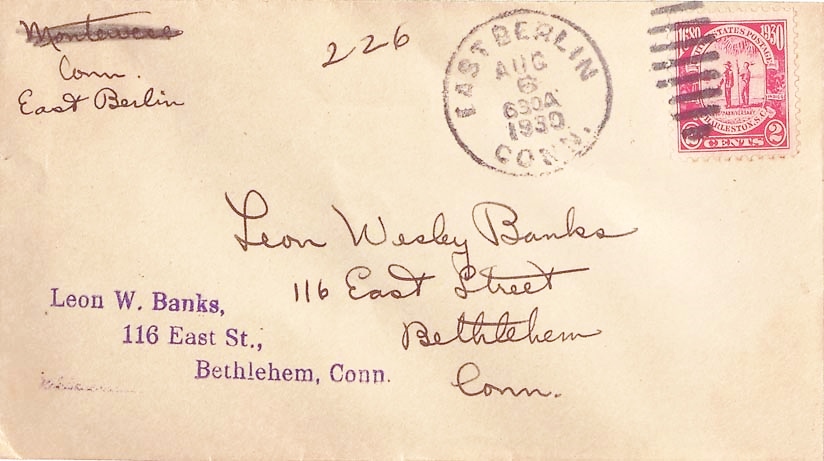 Conn.
East Berlin
226
EAST BERLIN
AUG
6
630A
1930
CONN.
1680 1930
UNITED STATES POSTAGE
ANNIVERSARY
CHARLESTON, S.C.
2 CENTS 2
Leon Wesley Banks
116 East Street
Bethlehem
Conn.
Leon W. Banks,
116 East St.,
Bethlehem, Conn.